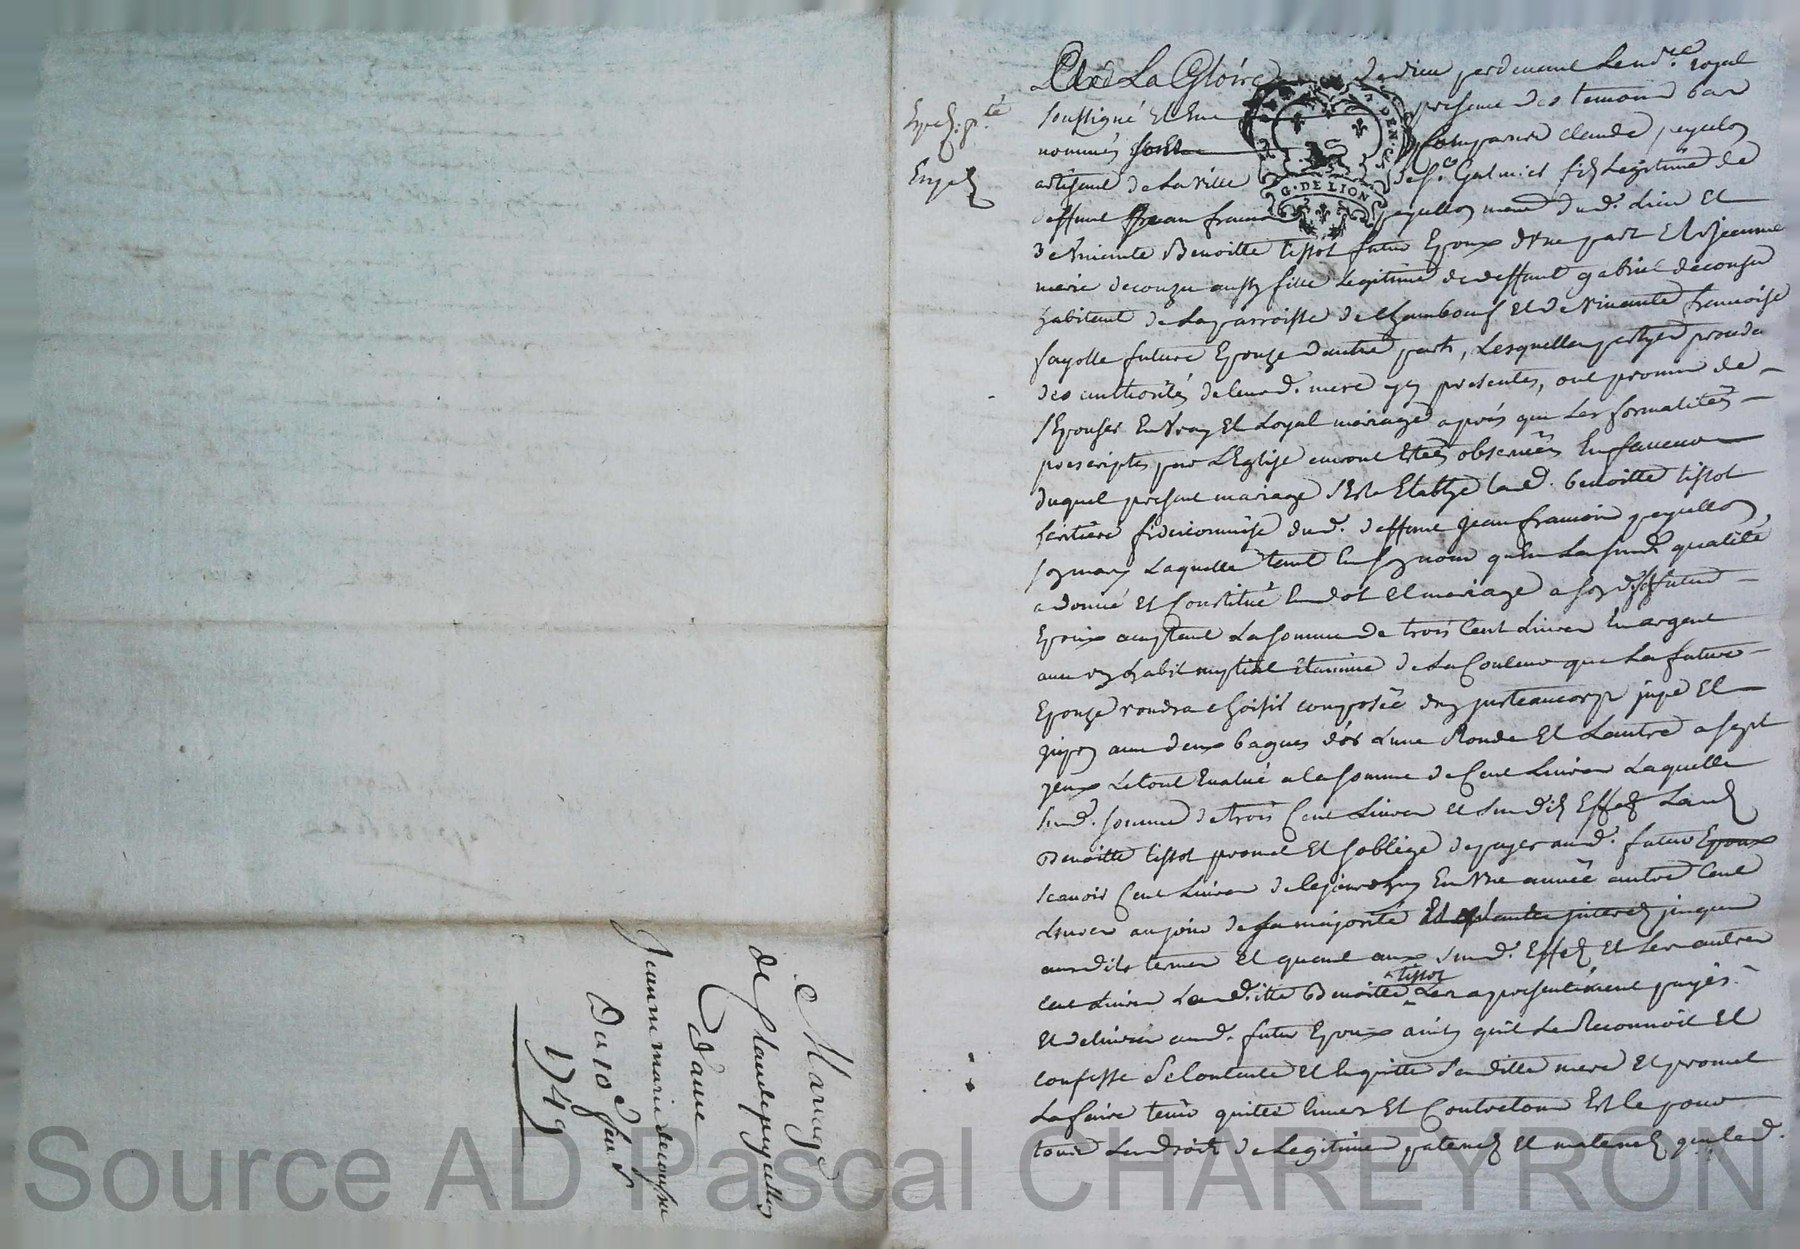 Mariage
de Claude peyellon
Dame
Jeanne marie decousu
Du 10e Jan
1749
Exped. pte
La Gloire de dieu pardevant Le nore royal
soussigné Et En presence des temoins bas
nommés Comparut claude peyellon
artisant de La Ville de St Galmier fils Legitime de
deffunt Jean francois peyellon dud. Lieu Et
de vivante Benoitte tissot futur Epoux d'une part Et Jeanne
marie decousu aussy fille Legitime de deffunt gabriel decousu
habitant de La parroisse de Chambœuf Et de vivante francoise
fayolle future Epouse dautre part, Lesquelles partyes procedant
des authorités de leurd. mere ycy presentes, ont promis de
s'Epouser En vray Et Loyal mariage apres que Les formalités
prescriptes par L'Eglise auront Etées observées En faveur
duquel present mariage s'est Etablye lad. benoitte tissot
heritiere fideicommise dud. deffunt Jean francois peyellon
son mary Laquelle tant En son nom qu'En La susd. qualité
a donné Et Constitué En dot Et mariage a son d. fils futur
Epoux acceptant La somme de trois Cent Livres En argent
avec un habit Etamine de La Couleur que La future
Epouse voudra choisir composée d'un justeaucorps jupe Et
jupon avec deux bagues d'or L'une Ronde Et L'autre a sept
yeux Le tout Evalué a la somme de Cent Livres Laquelle
susd. somme de trois Cent Livres et susdits Effets Lad.
Benoitte tissot promet Et s'oblige de payer aud. futur Epoux
scavoir Cent Livres de ce jourdhuy En une année autre Cent
Livres au jour de sa majorité jusques
auxdits termes Et quant aux susd. Effets Et Les autres
cent Livres Lad.itte Benoitte tissot Les a presentement payés
Et delivrés aud. futur Epoux ainsy qu'il Le Reconnoit Et
confesse s'En Contente Et En quitte sa ditte mere Et promet
La faire tenir quitte Envers Et Contre tous Et Ce pour
tous Les droits de Legitime paternels Et maternels que led.
G. DE LION
Source AD Pascal CHAREYRON